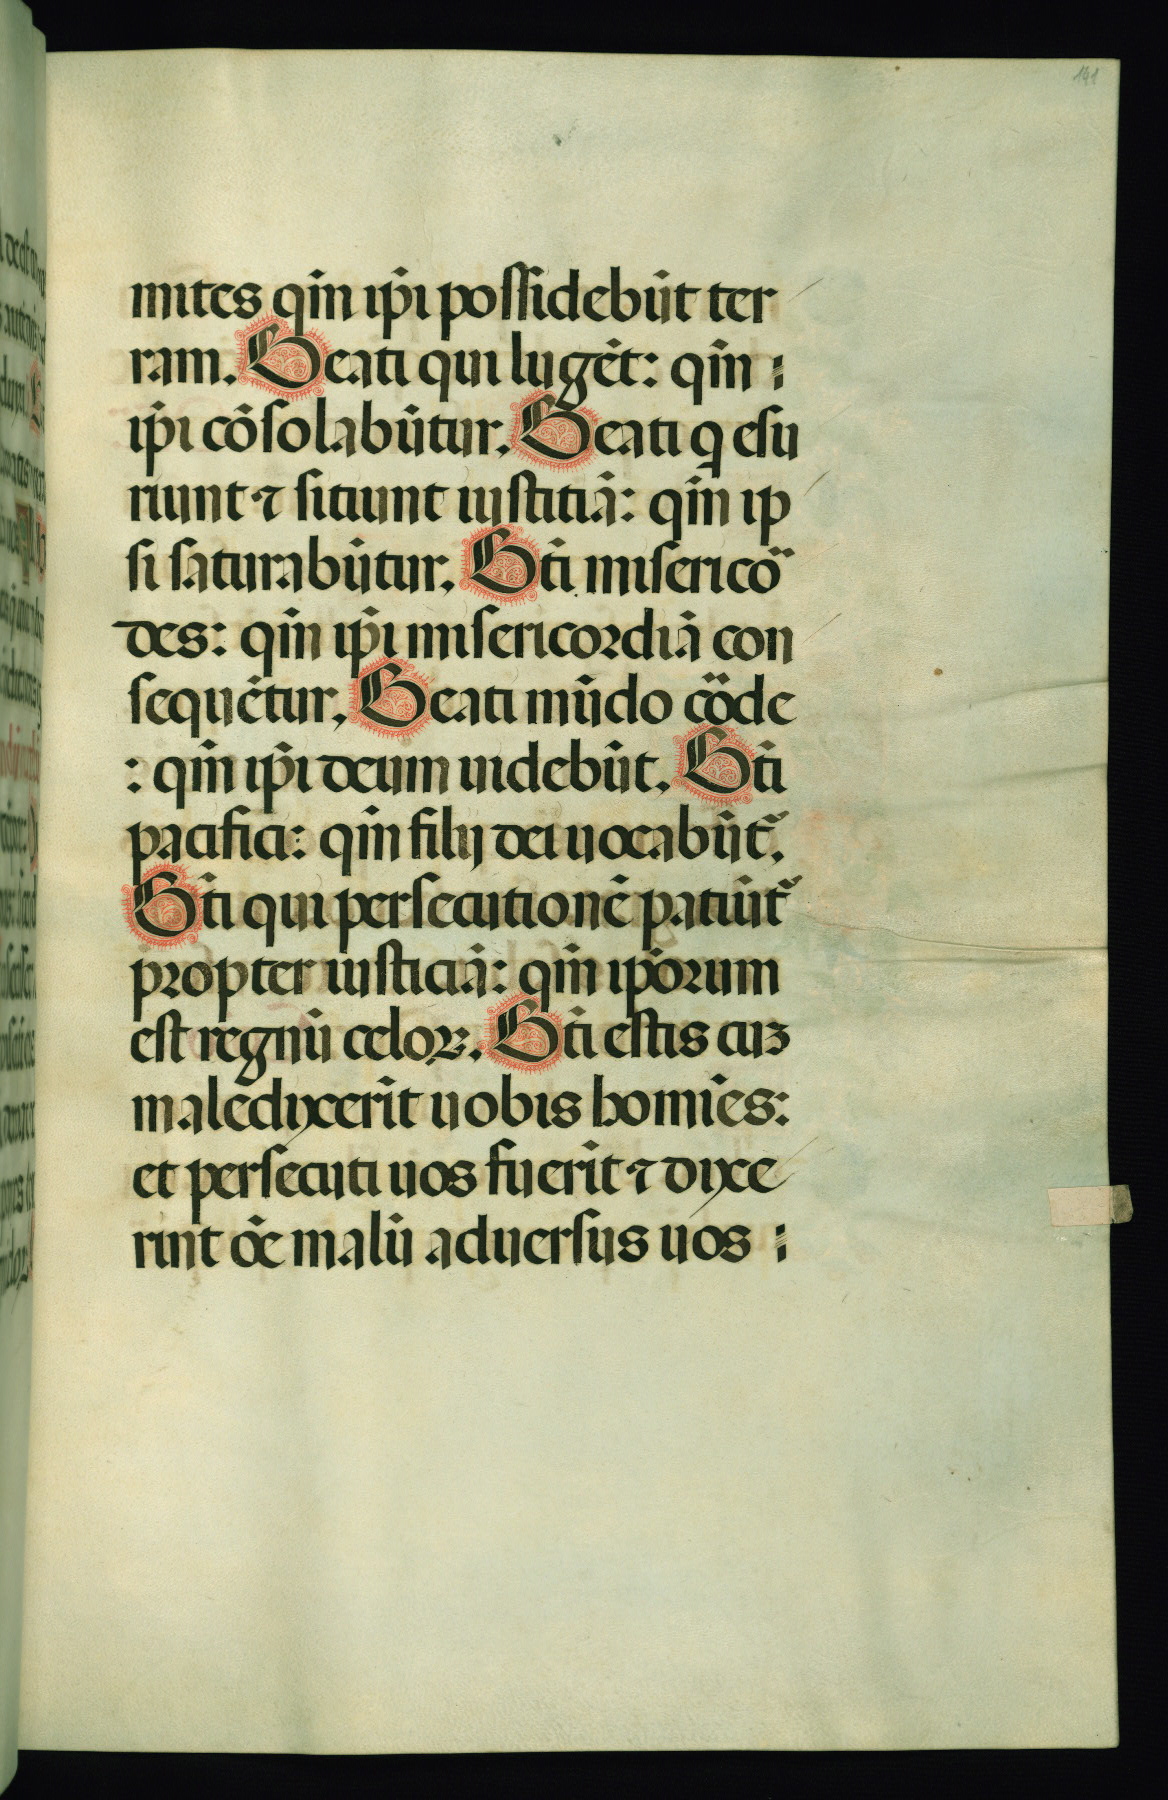 141
mites qm̄ ip̄i possidebūt ter
ram. Beati qui lugēt: qm̄
ip̄i cōsolabūtur. Beati q esu
riunt ⁊ sitiunt iustitiā: qm̄ ip
si saturabūtur. Bt̄i misericō
des: qm̄ ip̄i misericordiā con
sequētur. Beati mūdo cōde
: qm̄ ip̄i deum uidebūt. Bt̄i
pacifici: qm̄ filij dei uocabūt᷑.
Bt̄i qui persecutionē patiūt᷑
propter iusticiā: qm̄ ip̄orum
est regnū celoꝝ. Bt̄i estis cuꝫ
maledixerīt uobis homīes:
et persecuti uos fuerīt ⁊ dixe
rint ōe malū aduersus uos